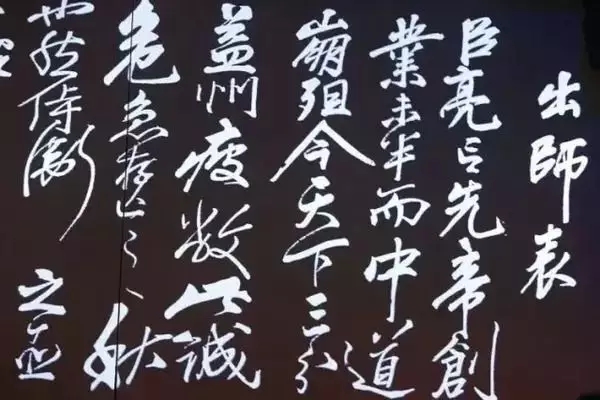 出師表
臣亮言先帝創
業未半而中道
崩殂今天下三分
益州疲敝此誠
危急存亡之秋
也然侍衛之臣